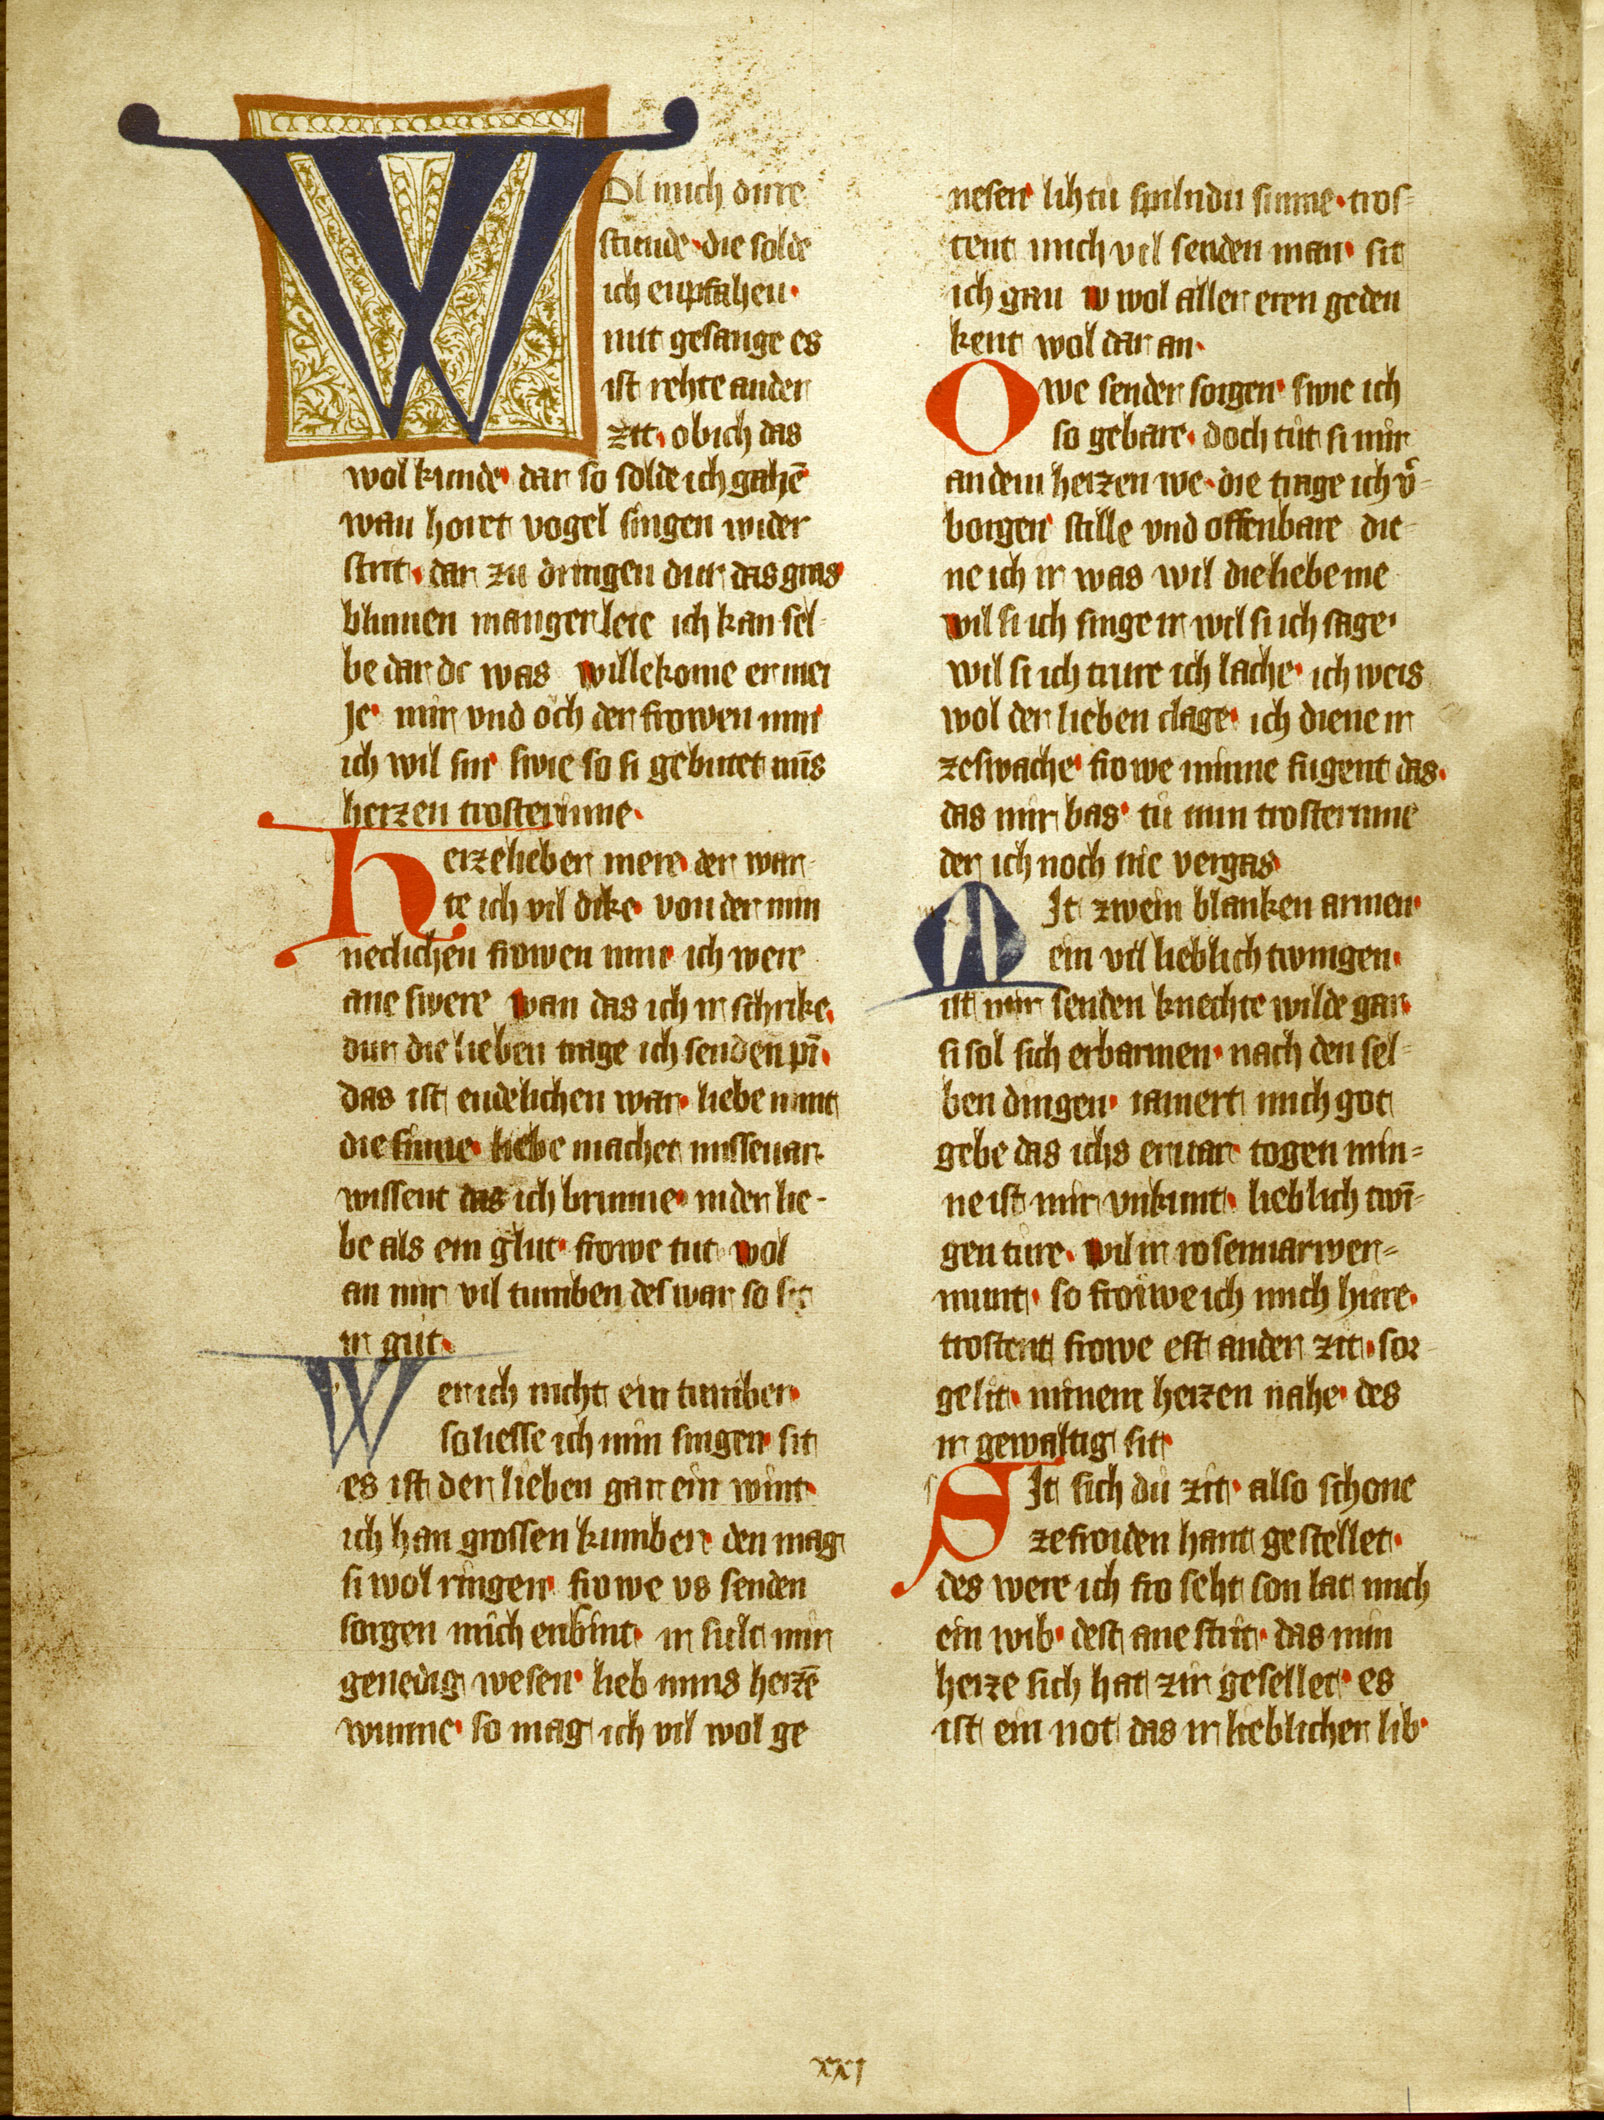 W
Ol mich dirre
stunde · die solde
ich enpfahen ·
mit gesange es
ist rehte ander
zit · ob ich das
wol kunde · dar so solde ich gahē
wan horet vogel singen wider
strit · dar zu dringen dur das gras
blumen manger leie ich kan sel-
be dar dc was willekome er mei
Je · mir vnd och der frowen min
ich wil sin swie so si gebutet mīs
herzen trosterinne ·
Herzelieber mere · der war-
te ich vil dike · von der min
neclichen frowen min · ich were
ane swere wan das ich ir schrike ·
dur die lieben trage ich senden pī ·
das ist endelichen war · liebe nimt
die sinne · liebe machet missevar ·
wissent das ich brinne · in der lie-
be als ein glut · frowe tut wol
an mir vil tumben des war so sit
ir gut ·
Wer ich nicht ein tumber ·
so liesse ich min singen · sit
es ist der lieben gar ein wint ·
ich han grossen kumber · den mag
si wol ringen · frowe vs senden
sorgen mich enbint · ir sult mir
genedig wesen · lieb mins herzē
wunne · so mag ich vil wol ge
nesen · lihtu spilndu sunne · tros-
tent mich vil senden man · sit
ich gan w wol aller eren geden
kent wol dar an ·
Owe sender sorgen · swie ich
so gebare · doch tut si mir
an dem herzen we · die trage ich v̄-
borgen · stille vnd offenbare die-
ne ich ir was wil die liebe me
wil si ich singe ir wil si ich sage ·
wil si ich trure ich lache · ich weis
wol der lieben clage · ich diene ir
ze swache · frowe minne fugent das ·
das mir bas · tu min trosterinne
der ich noch nie vergas ·
MIt zwein blanken armen ·
ein vil lieblich twingen ·
ist mir senden knechte wilde gar ·
si sol sich erbarmen · nach den sel-
ben dingen · iamert mich got
gebe das ichs ervar · togen min-
ne ist mir vnkunt · lieblich twī-
gen ture · wil ir rosenvarwer-
munt · so froiwe ich mich hure ·
trostent frowe est ander zit · sor-
ge lit · minem herzen nahe · des
ir gewaltig sit ·
SIt sich du zit · also schone
ze froiden hant gestellet ·
des were ich fro seht son lat mich
ein wib · dest ane strit · das min
herze sich hat zir gesellet · es
ist ein not das ir lieblicher lib ·
xxj